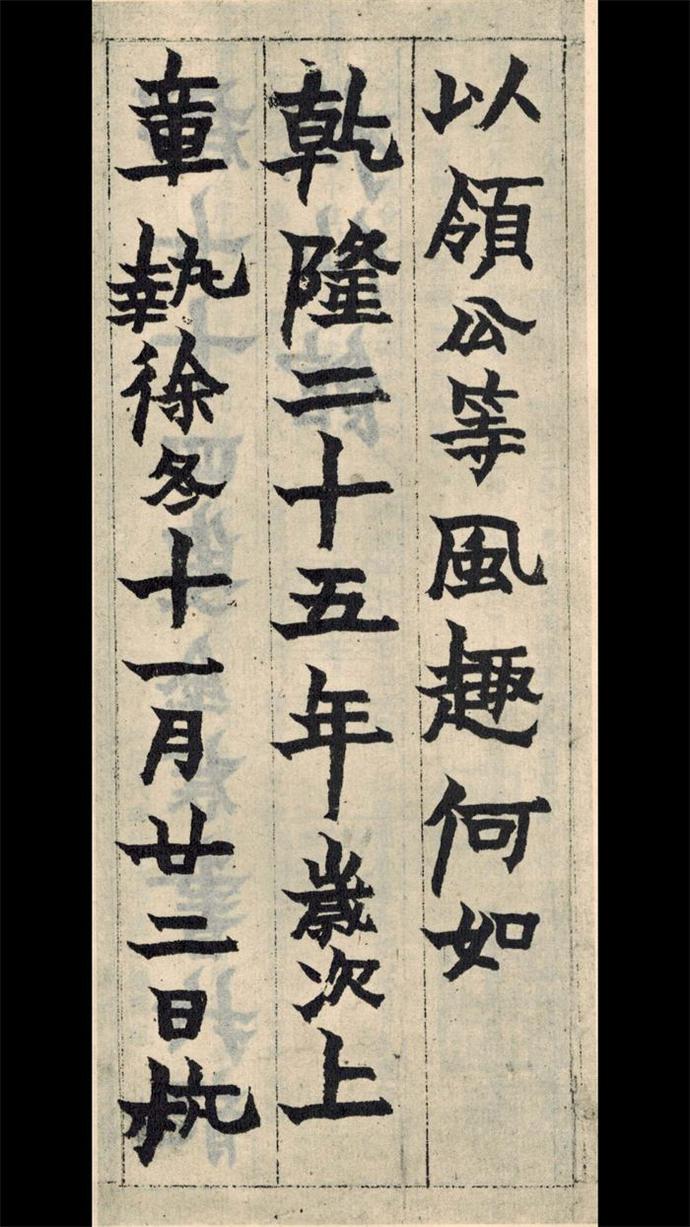 以領公等風趣何如
乾隆二十五年歲次上
章執徐冬十一月廿二日杭